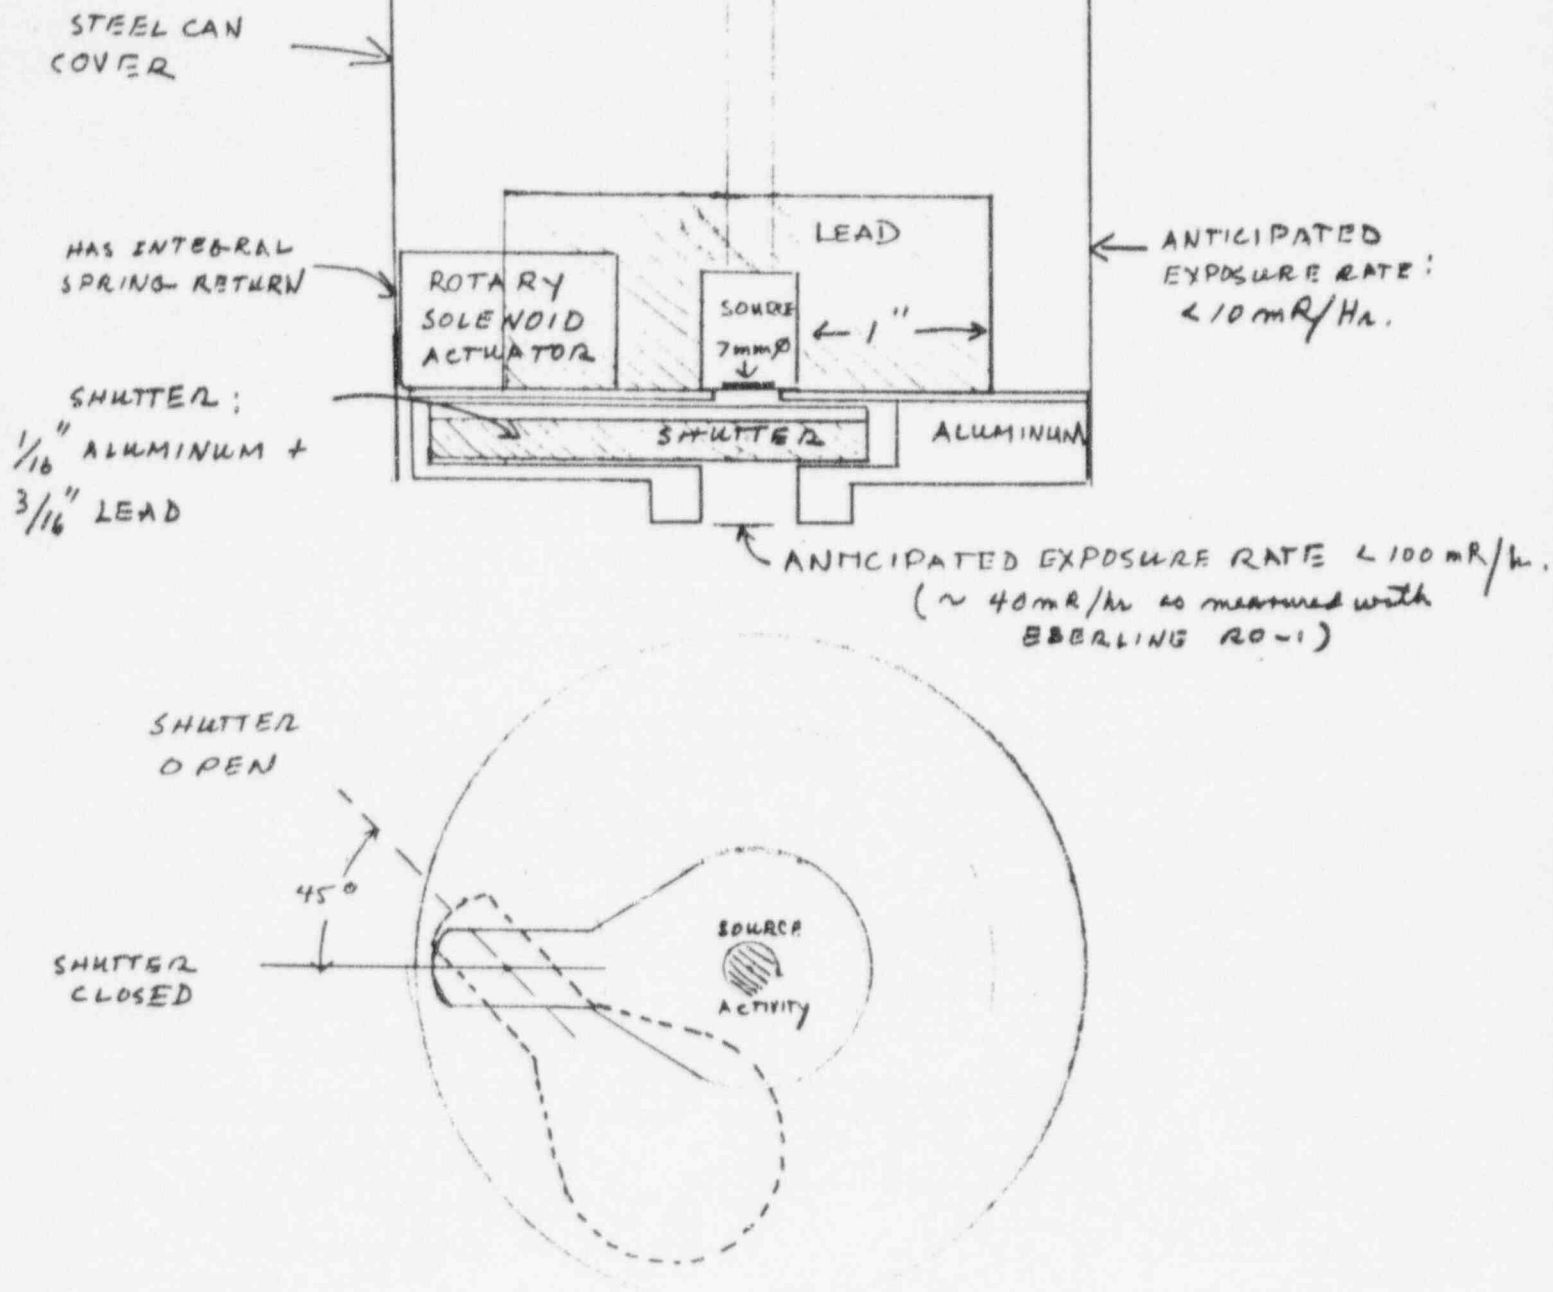 STEEL CAN
COVER
HAS INTEGRAL
SPRING RETURN
ROTARY
SOLENOID
ACTUATOR
LEAD
SOURCE
7mmØ
1"
ANTICIPATED
EXPOSURE RATE:
<10 mR/Hr.
SHUTTER:
1/16" ALUMINUM +
3/16" LEAD
SHUTTER
ALUMINUM
ANTICIPATED EXPOSURE RATE < 100 mR/h.
(~ 40mR/hr as measured with
EBERLINE RO-1)
SHUTTER
OPEN
45°
SHUTTER
CLOSED
SOURCE
ACTIVITY